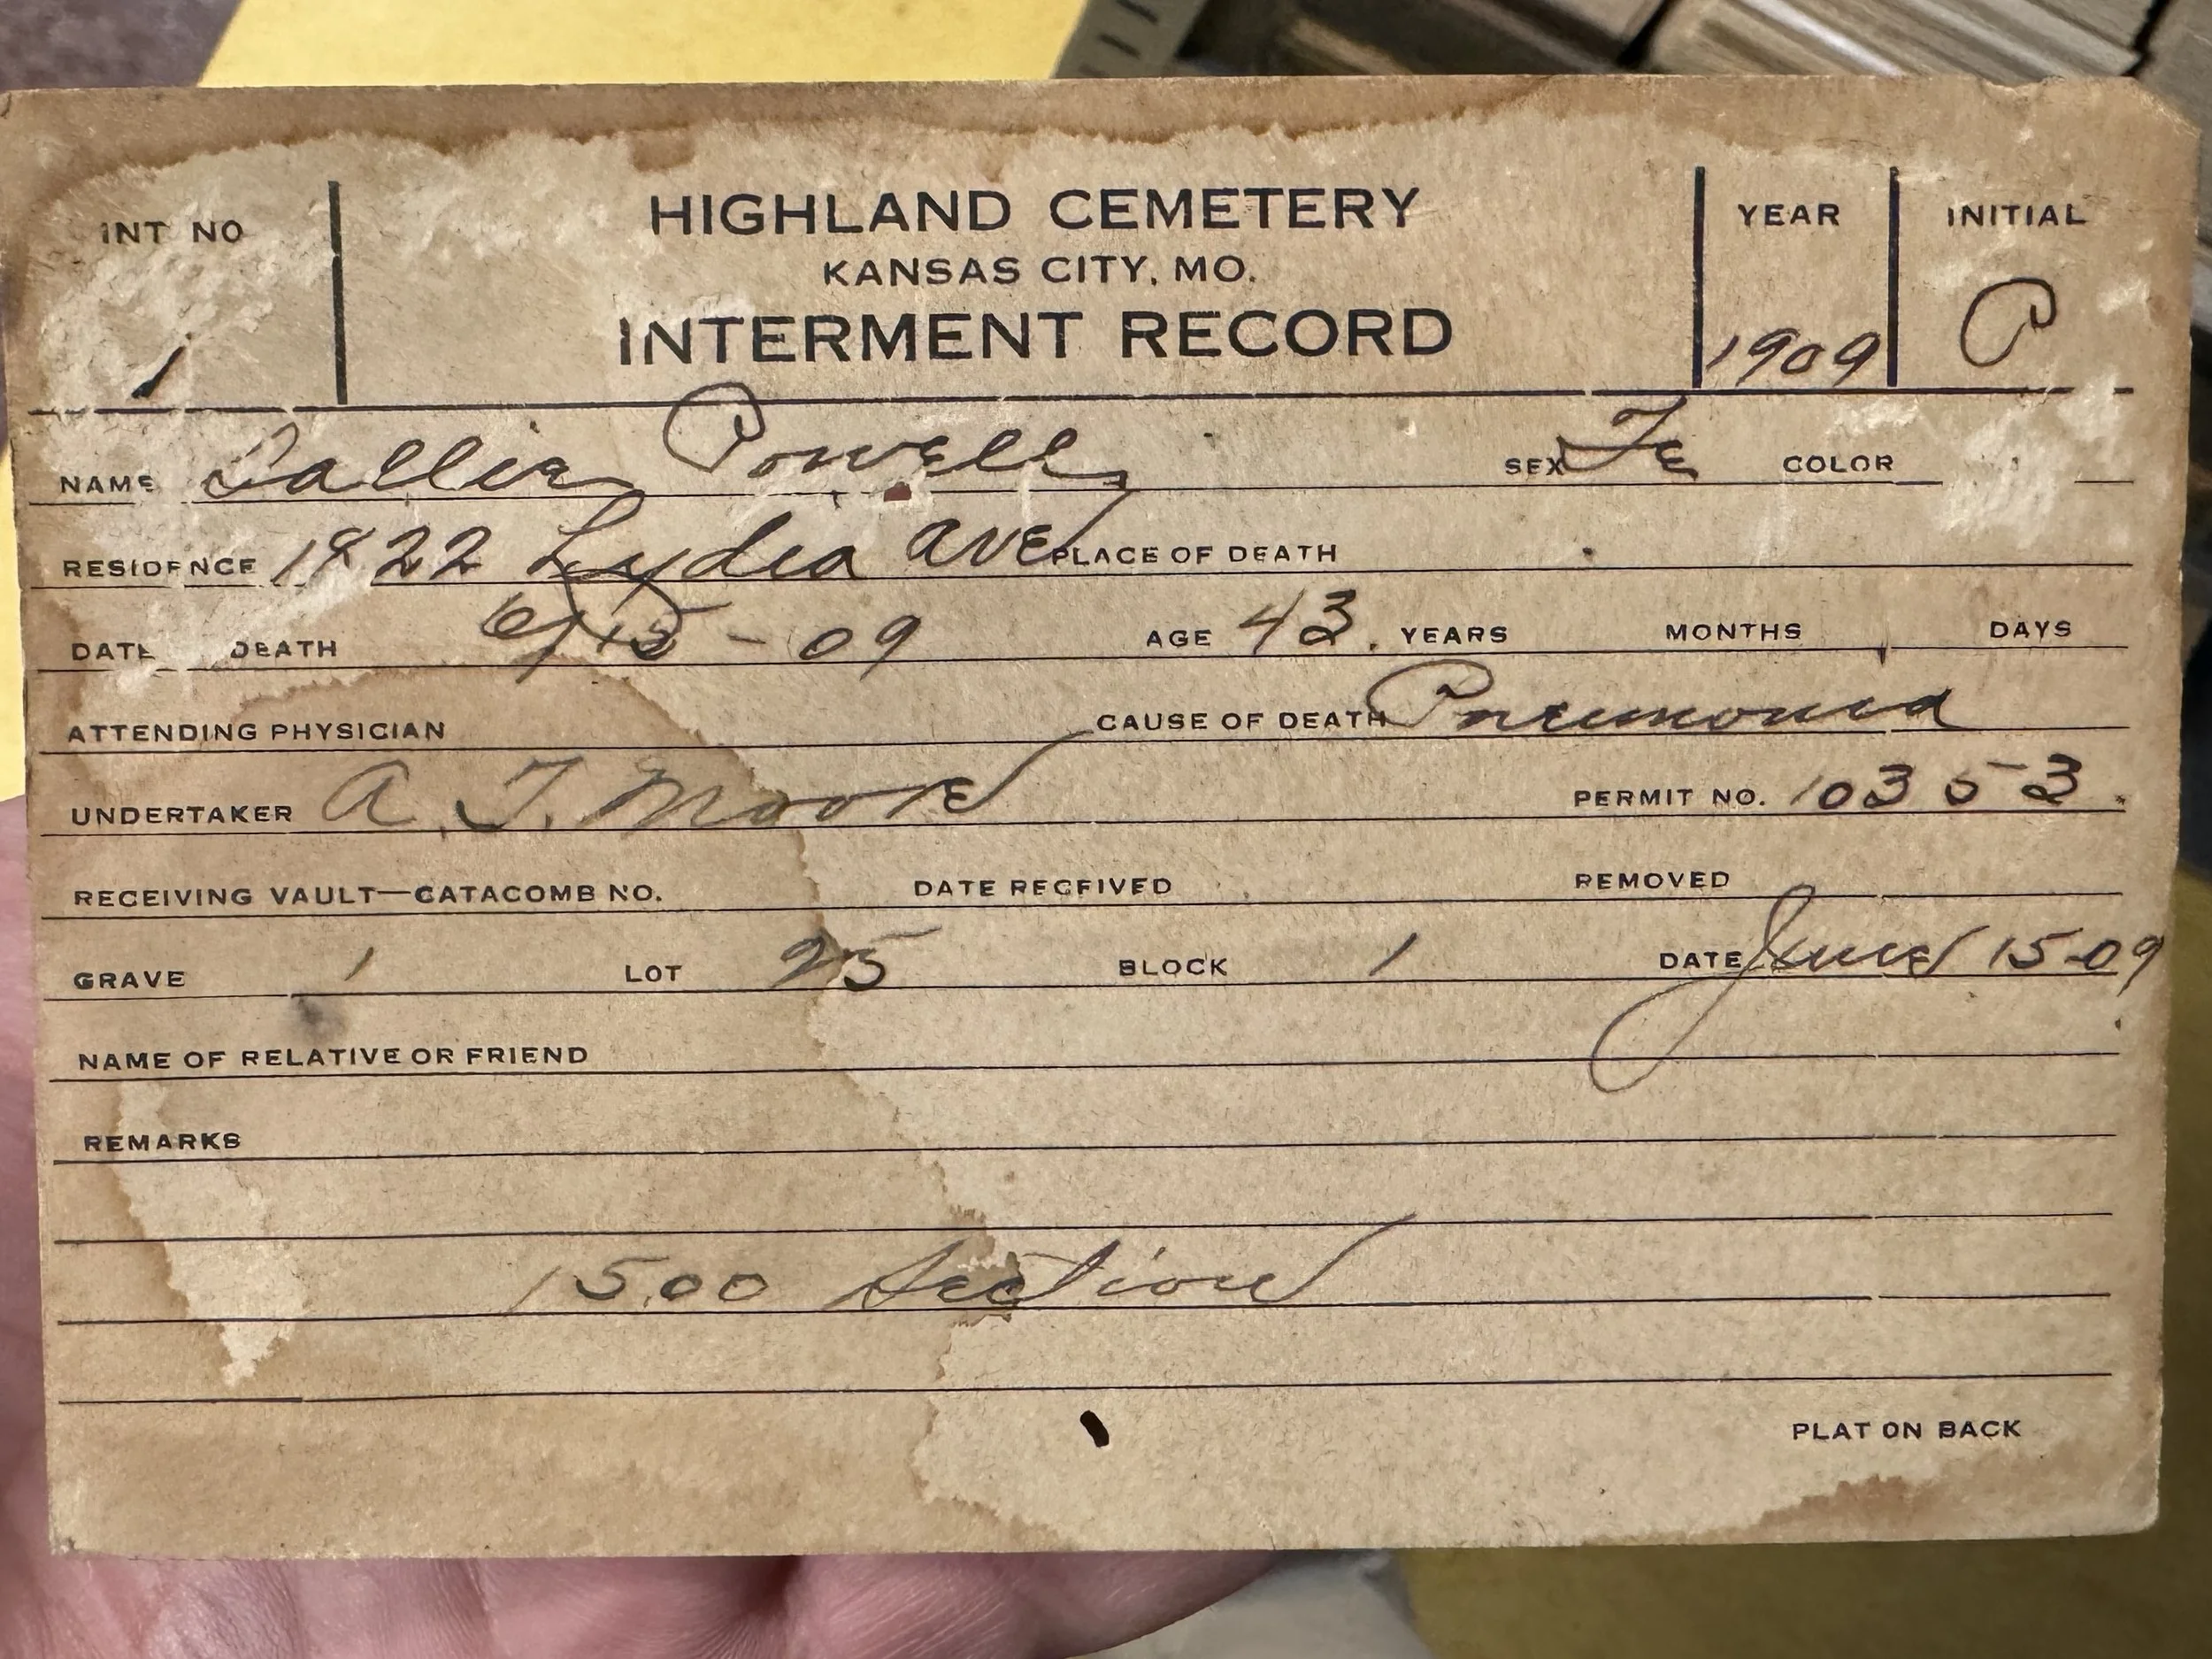 INT NO HIGHLAND CEMETERY YEAR INITIAL
KANSAS CITY, MO.
1 INTERMENT RECORD 1909 P
NAME Sallie Powell SEX Fe COLOR
RESIDENCE 1822 Lydia ave PLACE OF DEATH
DATE DEATH 6/15-09 AGE 43. YEARS MONTHS DAYS
ATTENDING PHYSICIAN CAUSE OF DEATH Pneumonia
UNDERTAKER A. T. Moore PERMIT NO. 10353.
RECEIVING VAULT—CATACOMB NO. DATE RECEIVED REMOVED
GRAVE 1 LOT 25 BLOCK 1 DATE June 15-09
NAME OF RELATIVE OR FRIEND
REMARKS
15.00 Section
PLAT ON BACK